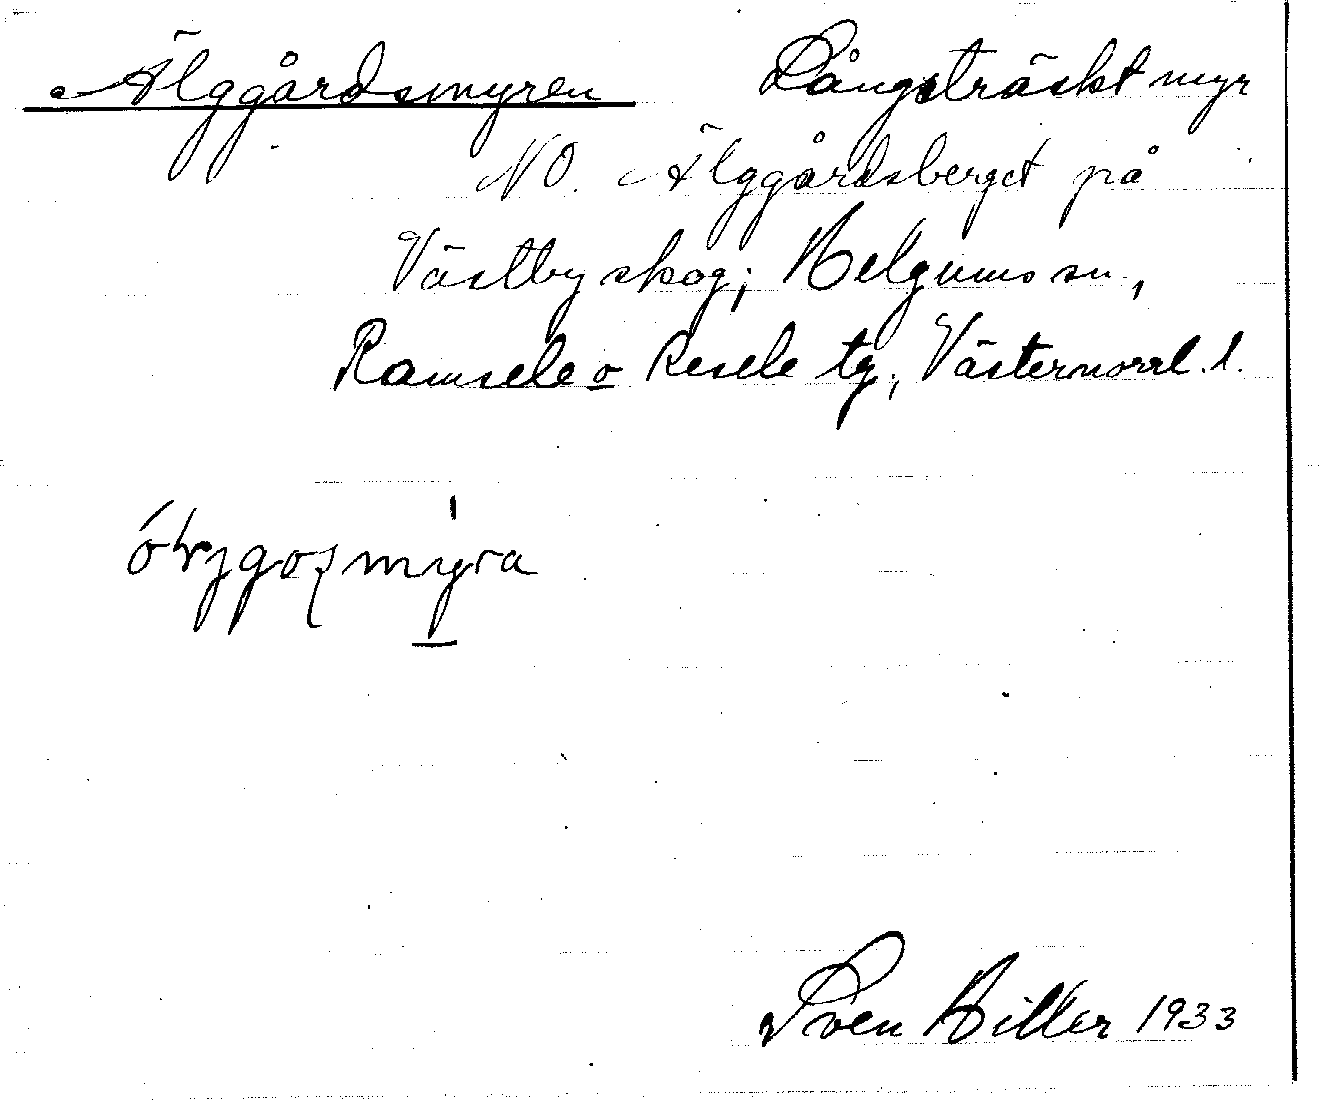 Älggårdsmyren Långsträckt myr
NO. Älggårdsberget på
Västby skog; Helgums sn.,
Ramsele o Resele tg., Västernorrl. l.
Sven Hiller 1933